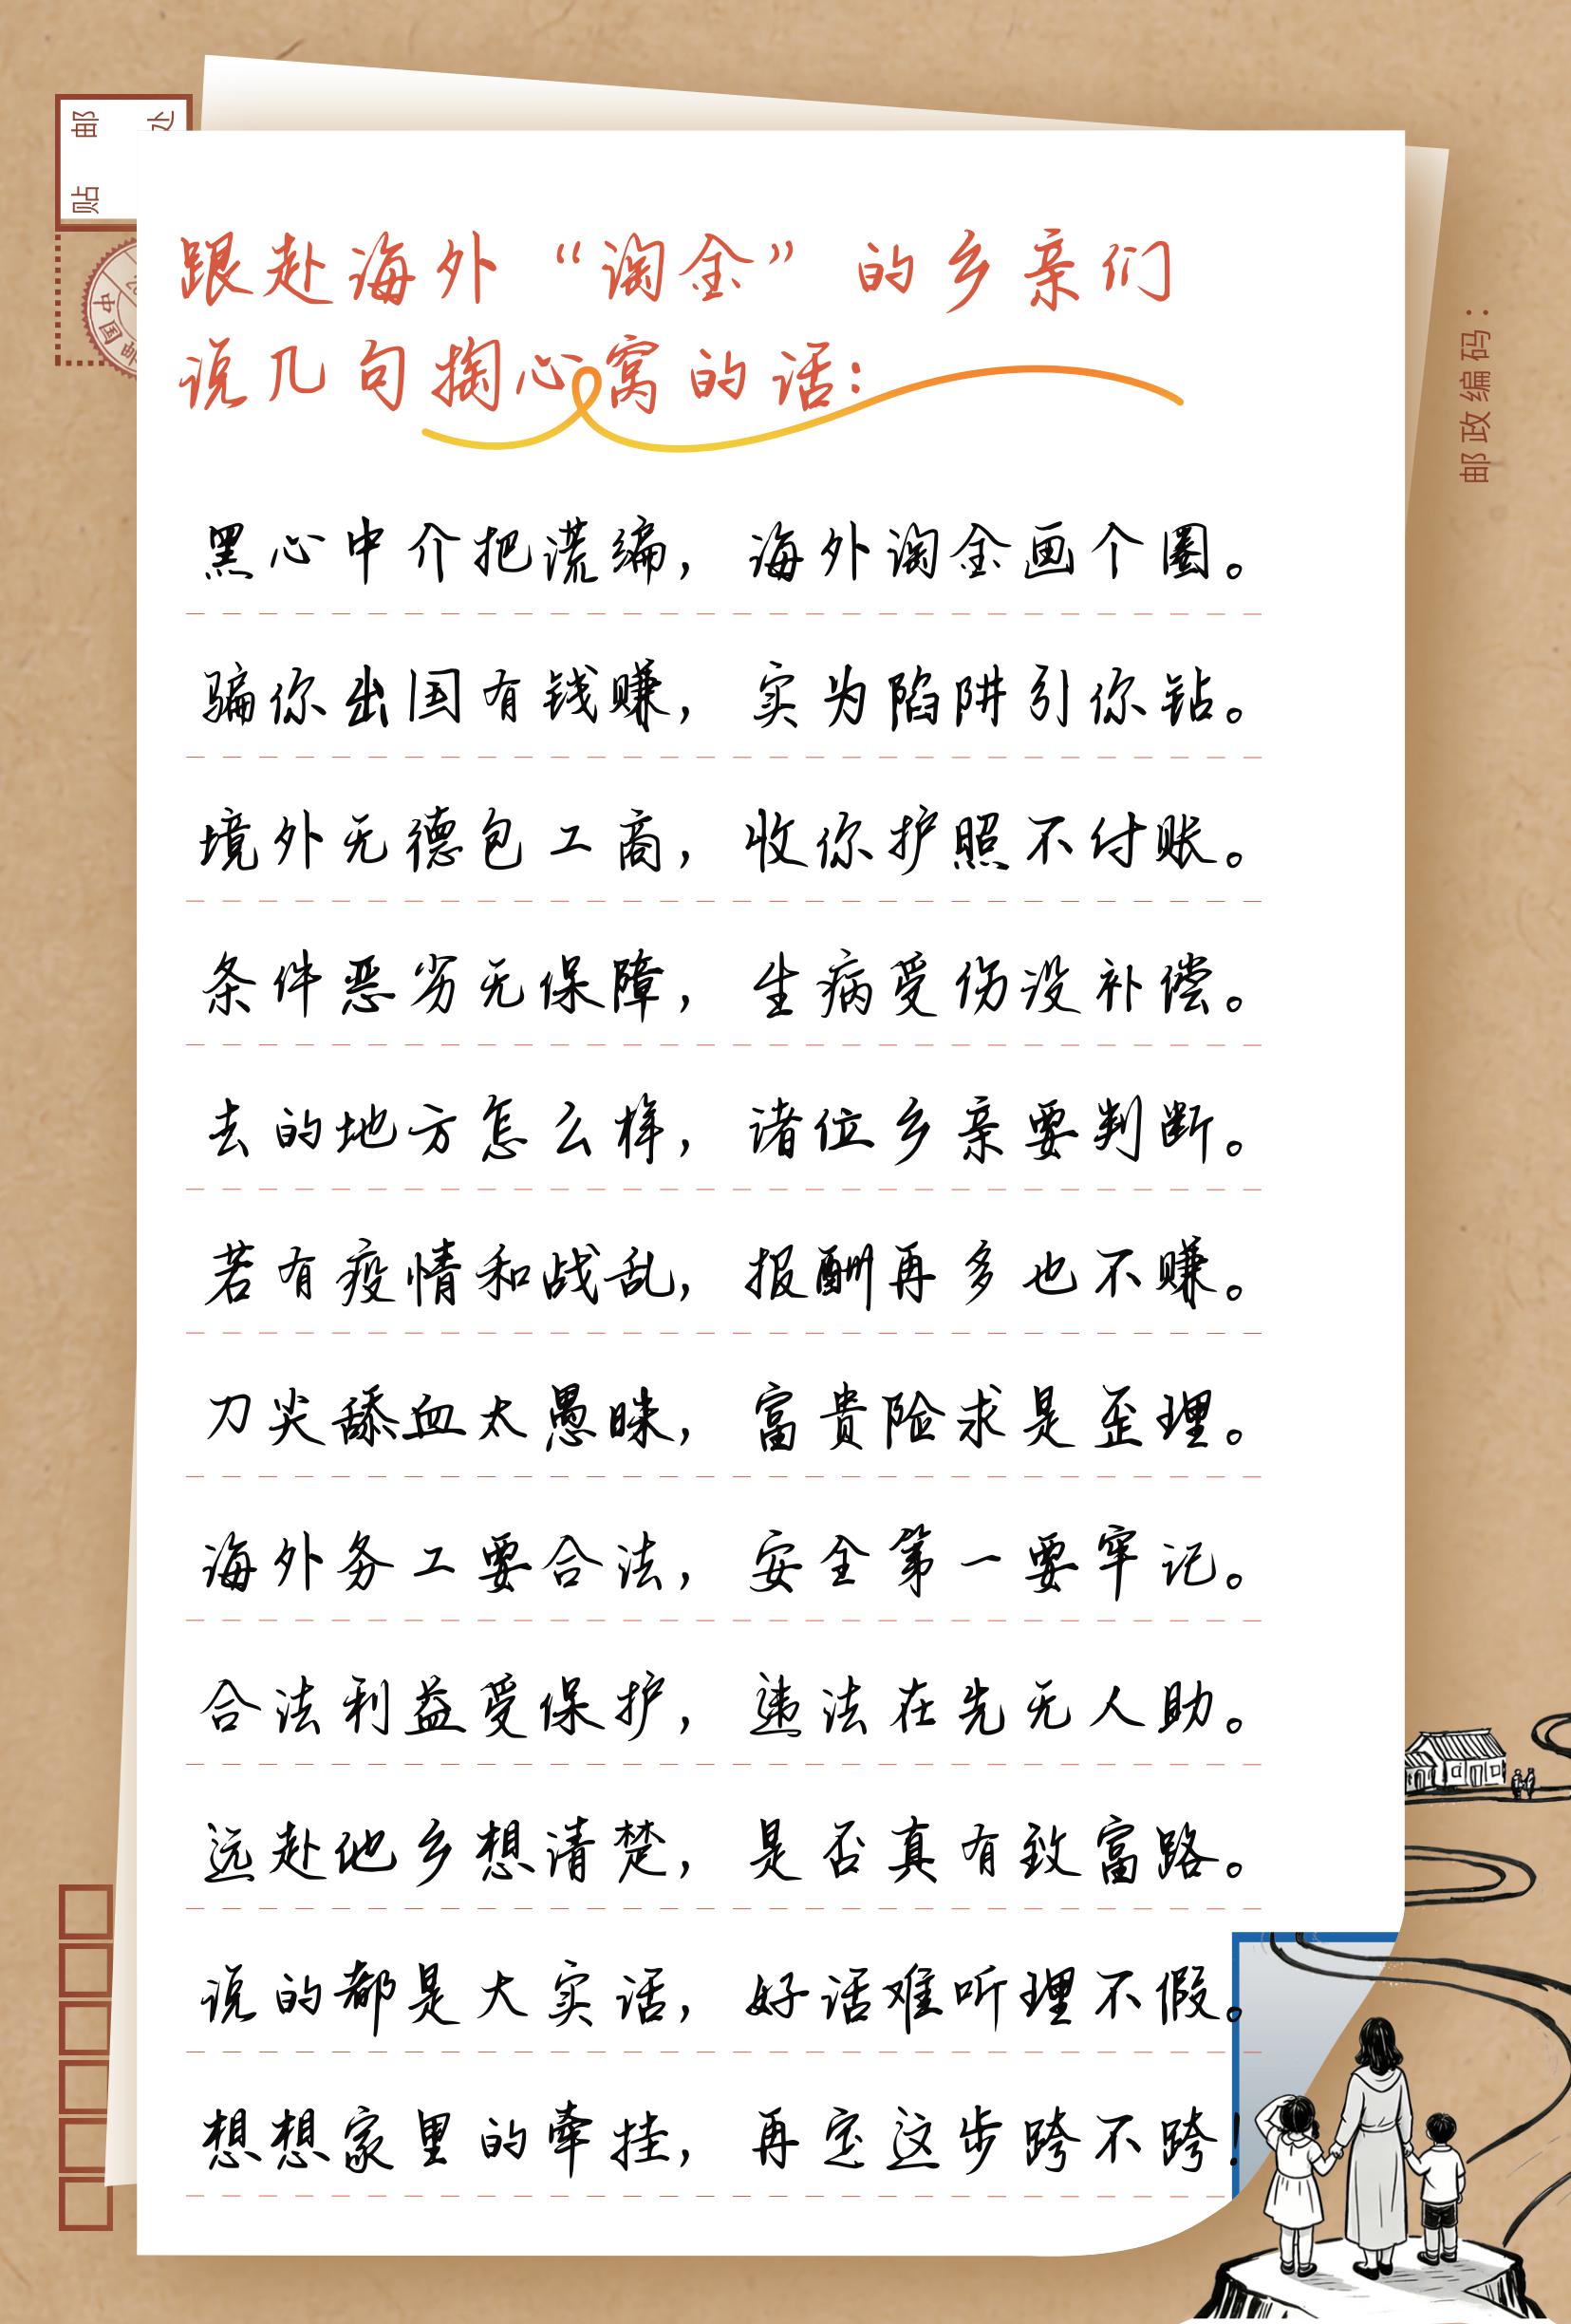 贴 邮 处
中国邮
邮政编码：
跟赴海外“淘金”的乡亲们
说几句掏心窝的话：
黑心中介把谎编，海外淘金画个圈。
骗你出国有钱赚，实为陷阱引你钻。
境外无德包工商，收你护照不付账。
条件恶劣无保障，生病受伤没补偿。
去的地方怎么样，诸位乡亲要判断。
若有疫情和战乱，报酬再多也不赚。
刀尖舔血太愚昧，富贵险求是歪理。
海外务工要合法，安全第一要牢记。
合法利益受保护，违法在先无人助。
远赴他乡想清楚，是否真有致富路。
说的都是大实话，好话难听理不假。
想想家里的牵挂，再定这步跨不跨！